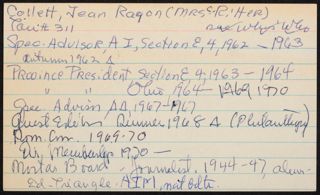 Collett, Jean Ragon (Mrs. R. Her)
311 see Who's Who
Spec. Advisor, A I, Section E, 4, 1962 - 1963
Autumn 1962 Δ
Province President Section E, 9, 1963 - 1964
" " " Ohio 1964 - 1969 1970
Spec. Advisor ΔΔ, 1967-1967
Guest Editor Summer 1968 Δ (Philanthropy)
Nom. Com. 1969-70
Dir. Membership 1970 —
Mortar Board - Journalist. 1944-47, alum.
Ed. Triangle. AIM, nat. edtr.